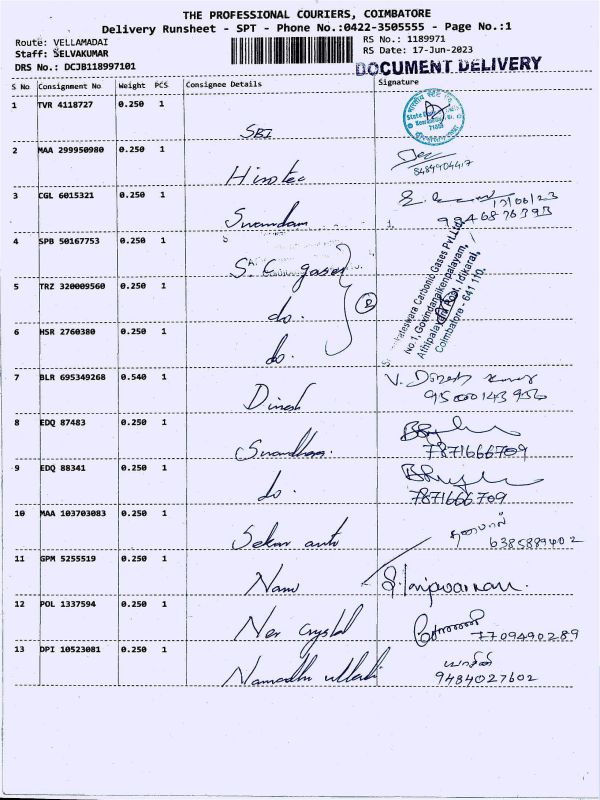 THE PROFESSIONAL COURIERS, COIMBATORE
Delivery Runsheet - SPT - Phone No.:0422-3505555 - Page No.:1
Route: VELLAMADAI
RS No.: 1189971
Staff: SELVAKUMAR
RS Date: 17-Jun-2023
DRS No.: DCJB118997101
DOCUMENT DELIVERY
S No Consignment No Weight PCS Consignee Details Signature
1 TVR 4118727 0.250 1 SBI
2 MAA 299950980 0.250 1 Hirotec
8489904417
3 CGL 6015321 0.250 1
17/06/23
9846876393
4 SPB 50167753 0.250 1 gases
5 TRZ 320009560 0.250 1 do.
6 HSR 2760380 0.250 1 do.
Carbonic Gases Pvt.Ltd.,
No.1, Govindanaikenpalayam,
Athipalayam Road, Idikarai,
Coimbatore - 641 110.
7 BLR 695349268 0.540 1 Dinesh V. Dinesh Kumar
8 EDQ 87483 0.250 1
7871666709
9 EDQ 88341 0.250 1 do.
7871666709
10 MAA 103703083 0.250 1 Sekar auto
6385889402
11 GPM 5255519 0.250 1
12 POL 1337594 0.250 1 Crystal
7709490289
13 DPI 10523081 0.250 1
9484027602